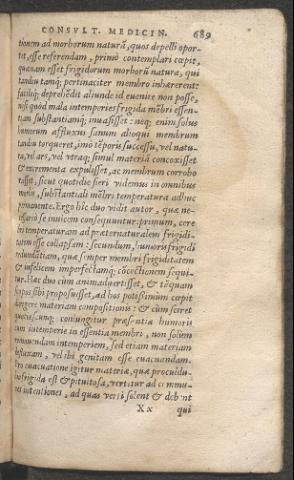 CONSVLT. MEDICIN. 689
tionem ad morborum naturã, quos depelli opor-
tet, esse referendam, primò contemplari cœpit,
quanam esset frigidorum morborũ natura, qui
tandiu tamq; pertinaciter membro inhærerent:
facileq; deprehẽdit aliunde id euenire non posse,
nisi quòd mala intemperies frigida mẽbri essen-
tiam substantiamq; inuasisset: neq; enim solus
humorum affluxus sanum alioqui membrum
tandiu torqueret, imò tẽporis successu, vel natu-
ra, vel ars, vel vtraq; simul materiã concoxisset
& excrementa expulisset, ac membrum corrobo
rasset, sicut quotidie fieri videmus in omnibus
morbis, substantiali mẽbri temperatura adhuc
permanente. Ergo hîc duo vidit autor, quæ ne-
cessariò se inuicem consequuntur: primum, cere
bri temperaturam ad præternaturalem frigidi-
tatem esse collapsam: secundum, humoris frigidi
redundantiam, quæ semper membri frigiditatem
& infelicem imperfectamq; cõcoctionem sequi-
tur. Hæc duo cum animaduertisset, & tãquam
scopos sibi proposuisset, ad hos potissimum cœpit
dirigere materiam compositionis: & cùm sciret
quotiescunq; coniungitur præsentia humoris
cum intemperie in essentia membri, non solùm
remouendam intemperiem, sed etiam materiam
influxam, vel ibi genitam esse euacuandam.
Pro euacuatione igitur materiæ, quæ proculdu-
bio frigida est & pituitosa, vertitur ad commu-
nes intentiones, ad quas versi solent & debent
Xx qui